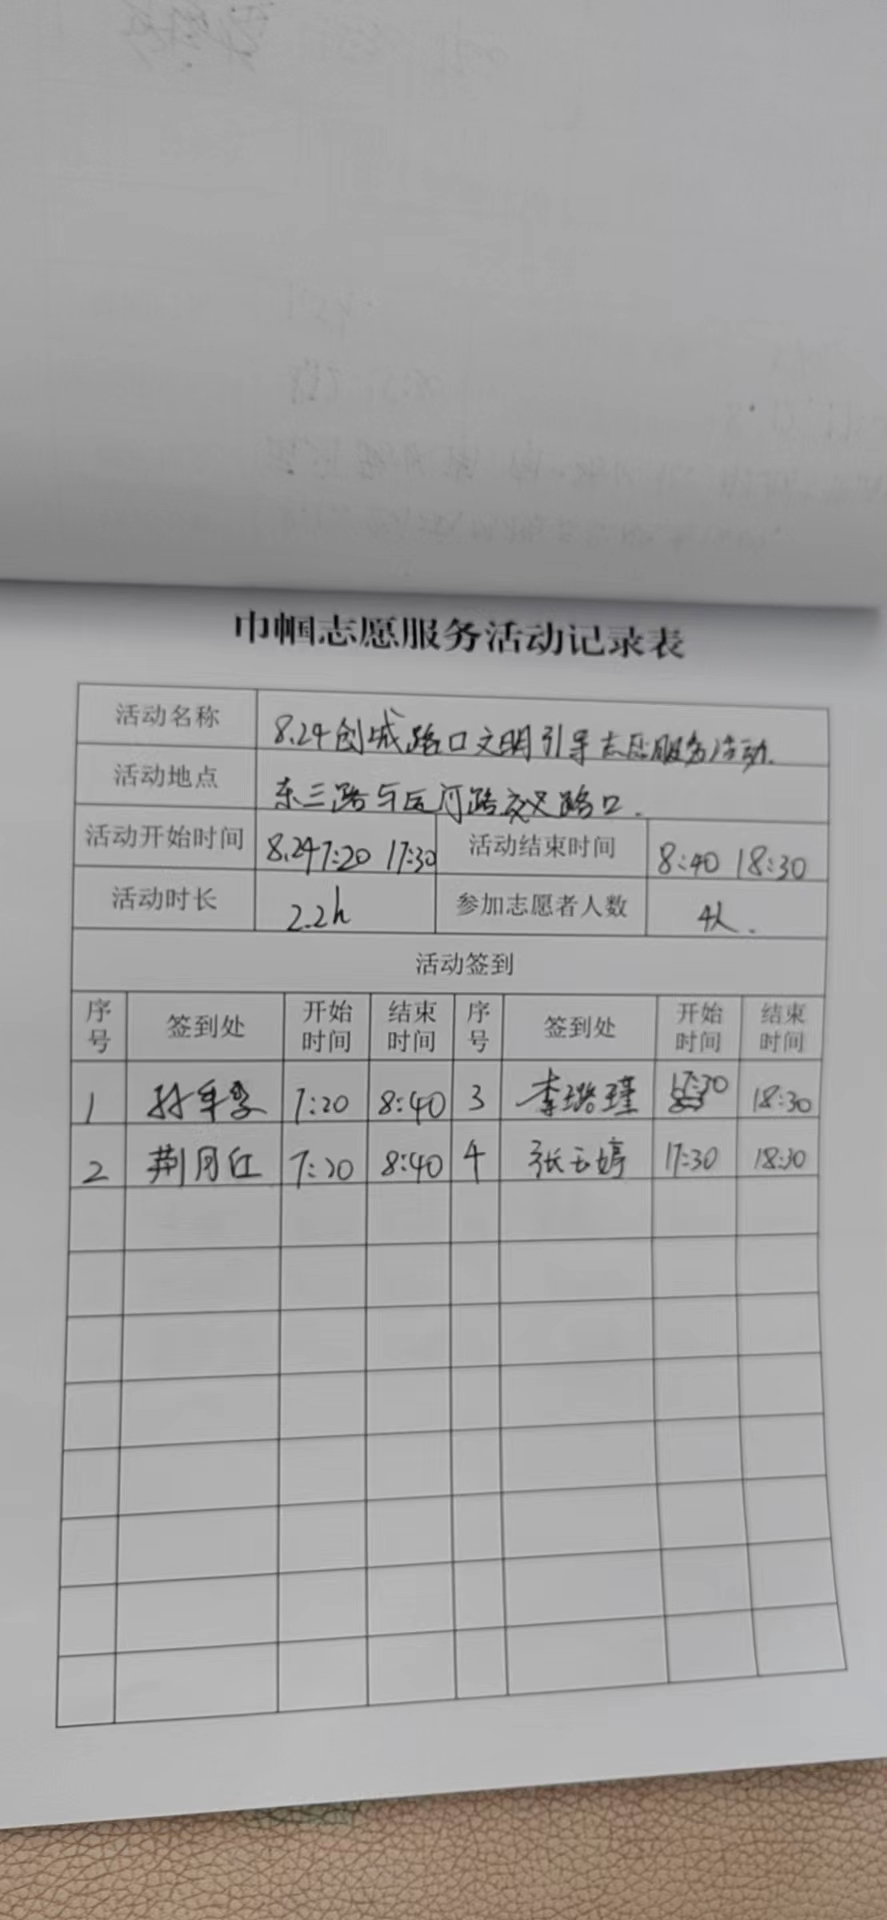 巾帼志愿服务活动记录表
活动名称 8.24创城路口文明引导志愿服务活动.
活动地点 东三路与 河路交叉路口.
活动开始时间 8.24 7:20 17:30 活动结束时间 8:40 18:30
活动时长 2.2h 参加志愿者人数 4人.
活动签到
序号 签到处 开始时间 结束时间 序号 签到处 开始时间 结束时间
1 7:20 8:40 3 李璐瑾 17:30 18:30
2 荆月红 7:20 8:40 4 张玉婷 17:30 18:30